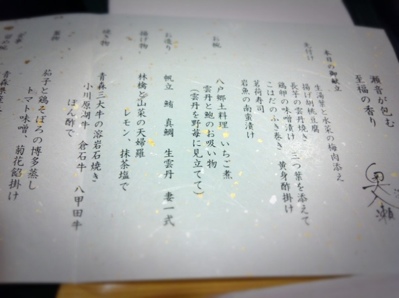 瀬音が包む
至福の香り
本日の御献立
先付け
生湯葉と水菜の梅肉添え
揚げ胡桃豆腐
長芋の雲丹焼き 三つ葉を添えて
鶏卵の味噌漬け
こはだのふき巻き 黄身酢掛け
茗荷寿司
岩魚の南蛮漬け
お椀
八戸郷土料理 いちご煮
雲丹と鮑のお吸い物
(雲丹を野苺に見立てて)
お造り
帆立 鮪 真鯛 生雲丹 妻一式
揚げ物
林檎と山菜の天婦羅
レモン 抹茶塩で
焼き物
青森三大牛の溶岩石焼き
小川原湖牛 倉石牛 八甲田牛
ぽん酢で
茄子と鶏そぼろの博多蒸し
トマト味噌 菊花餡掛け